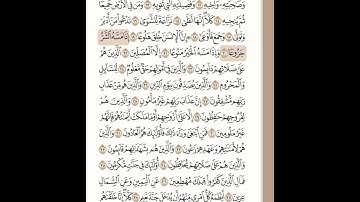 وَصَٰحِبَتِهِۦ وَأَخِيهِ ۝١٢ وَفَصِيلَتِهِ ٱلَّتِي تُـٔۡوِيهِ ۝١٣ وَمَن فِي ٱلۡأَرۡضِ جَمِيعٗا
ثُمَّ يُنجِيهِ ۝١٤ كَلَّآۖ إِنَّهَا لَظَىٰ ۝١٥ نَزَّاعَةٗ لِّلشَّوَىٰ ۝١٦ تَدۡعُواْ مَنۡ أَدۡبَرَ
وَتَوَلَّىٰ ۝١٧ وَجَمَعَ فَأَوۡعَىٰٓ ۝١٨ ۞ إِنَّ ٱلۡإِنسَٰنَ خُلِقَ هَلُوعًا ۝١٩ إِذَا مَسَّهُ ٱلشَّرُّ
جَزُوعٗا ۝٢٠ وَإِذَا مَسَّهُ ٱلۡخَيۡرُ مَنُوعًا ۝٢١ إِلَّا ٱلۡمُصَلِّينَ ۝٢٢ ٱلَّذِينَ هُمۡ
عَلَىٰ صَلَاتِهِمۡ دَآئِمُونَ ۝٢٣ وَٱلَّذِينَ فِيٓ أَمۡوَٰلِهِمۡ حَقّٞ مَّعۡلُومٞ ۝٢٤ لِّلسَّآئِلِ
وَٱلۡمَحۡرُومِ ۝٢٥ وَٱلَّذِينَ يُصَدِّقُونَ بِيَوۡمِ ٱلدِّينِ ۝٢٦ وَٱلَّذِينَ هُم مِّنۡ عَذَابِ
رَبِّهِم مُّشۡفِقُونَ ۝٢٧ إِنَّ عَذَابَ رَبِّهِمۡ غَيۡرُ مَأۡمُونٖ ۝٢٨ وَٱلَّذِينَ هُمۡ
لِفُرُوجِهِمۡ حَٰفِظُونَ ۝٢٩ إِلَّا عَلَىٰٓ أَزۡوَٰجِهِمۡ أَوۡ مَا مَلَكَتۡ أَيۡمَٰنُهُمۡ فَإِنَّهُمۡ
غَيۡرُ مَلُومِينَ ۝٣٠ فَمَنِ ٱبۡتَغَىٰ وَرَآءَ ذَٰلِكَ فَأُوْلَٰٓئِكَ هُمُ ٱلۡعَادُونَ ۝٣١ وَٱلَّذِينَ
هُمۡ لِأَمَٰنَٰتِهِمۡ وَعَهۡدِهِمۡ رَٰعُونَ ۝٣٢ وَٱلَّذِينَ هُم بِشَهَٰدَٰتِهِمۡ قَآئِمُونَ ۝٣٣
وَٱلَّذِينَ هُمۡ عَلَىٰ صَلَاتِهِمۡ يُحَافِظُونَ ۝٣٤ أُوْلَٰٓئِكَ فِي جَنَّٰتٖ مُّكۡرَمُونَ ۝٣٥
فَمَالِ ٱلَّذِينَ كَفَرُواْ قِبَلَكَ مُهۡطِعِينَ ۝٣٦ عَنِ ٱلۡيَمِينِ وَعَنِ ٱلشِّمَالِ
عِزِينَ ۝٣٧ أَيَطۡمَعُ كُلُّ ٱمۡرِيٕٖ مِّنۡهُمۡ أَن يُدۡخَلَ جَنَّةَ نَعِيمٖ ۝٣٨ كَلَّآۖ إِنَّا خَلَقۡنَٰهُم